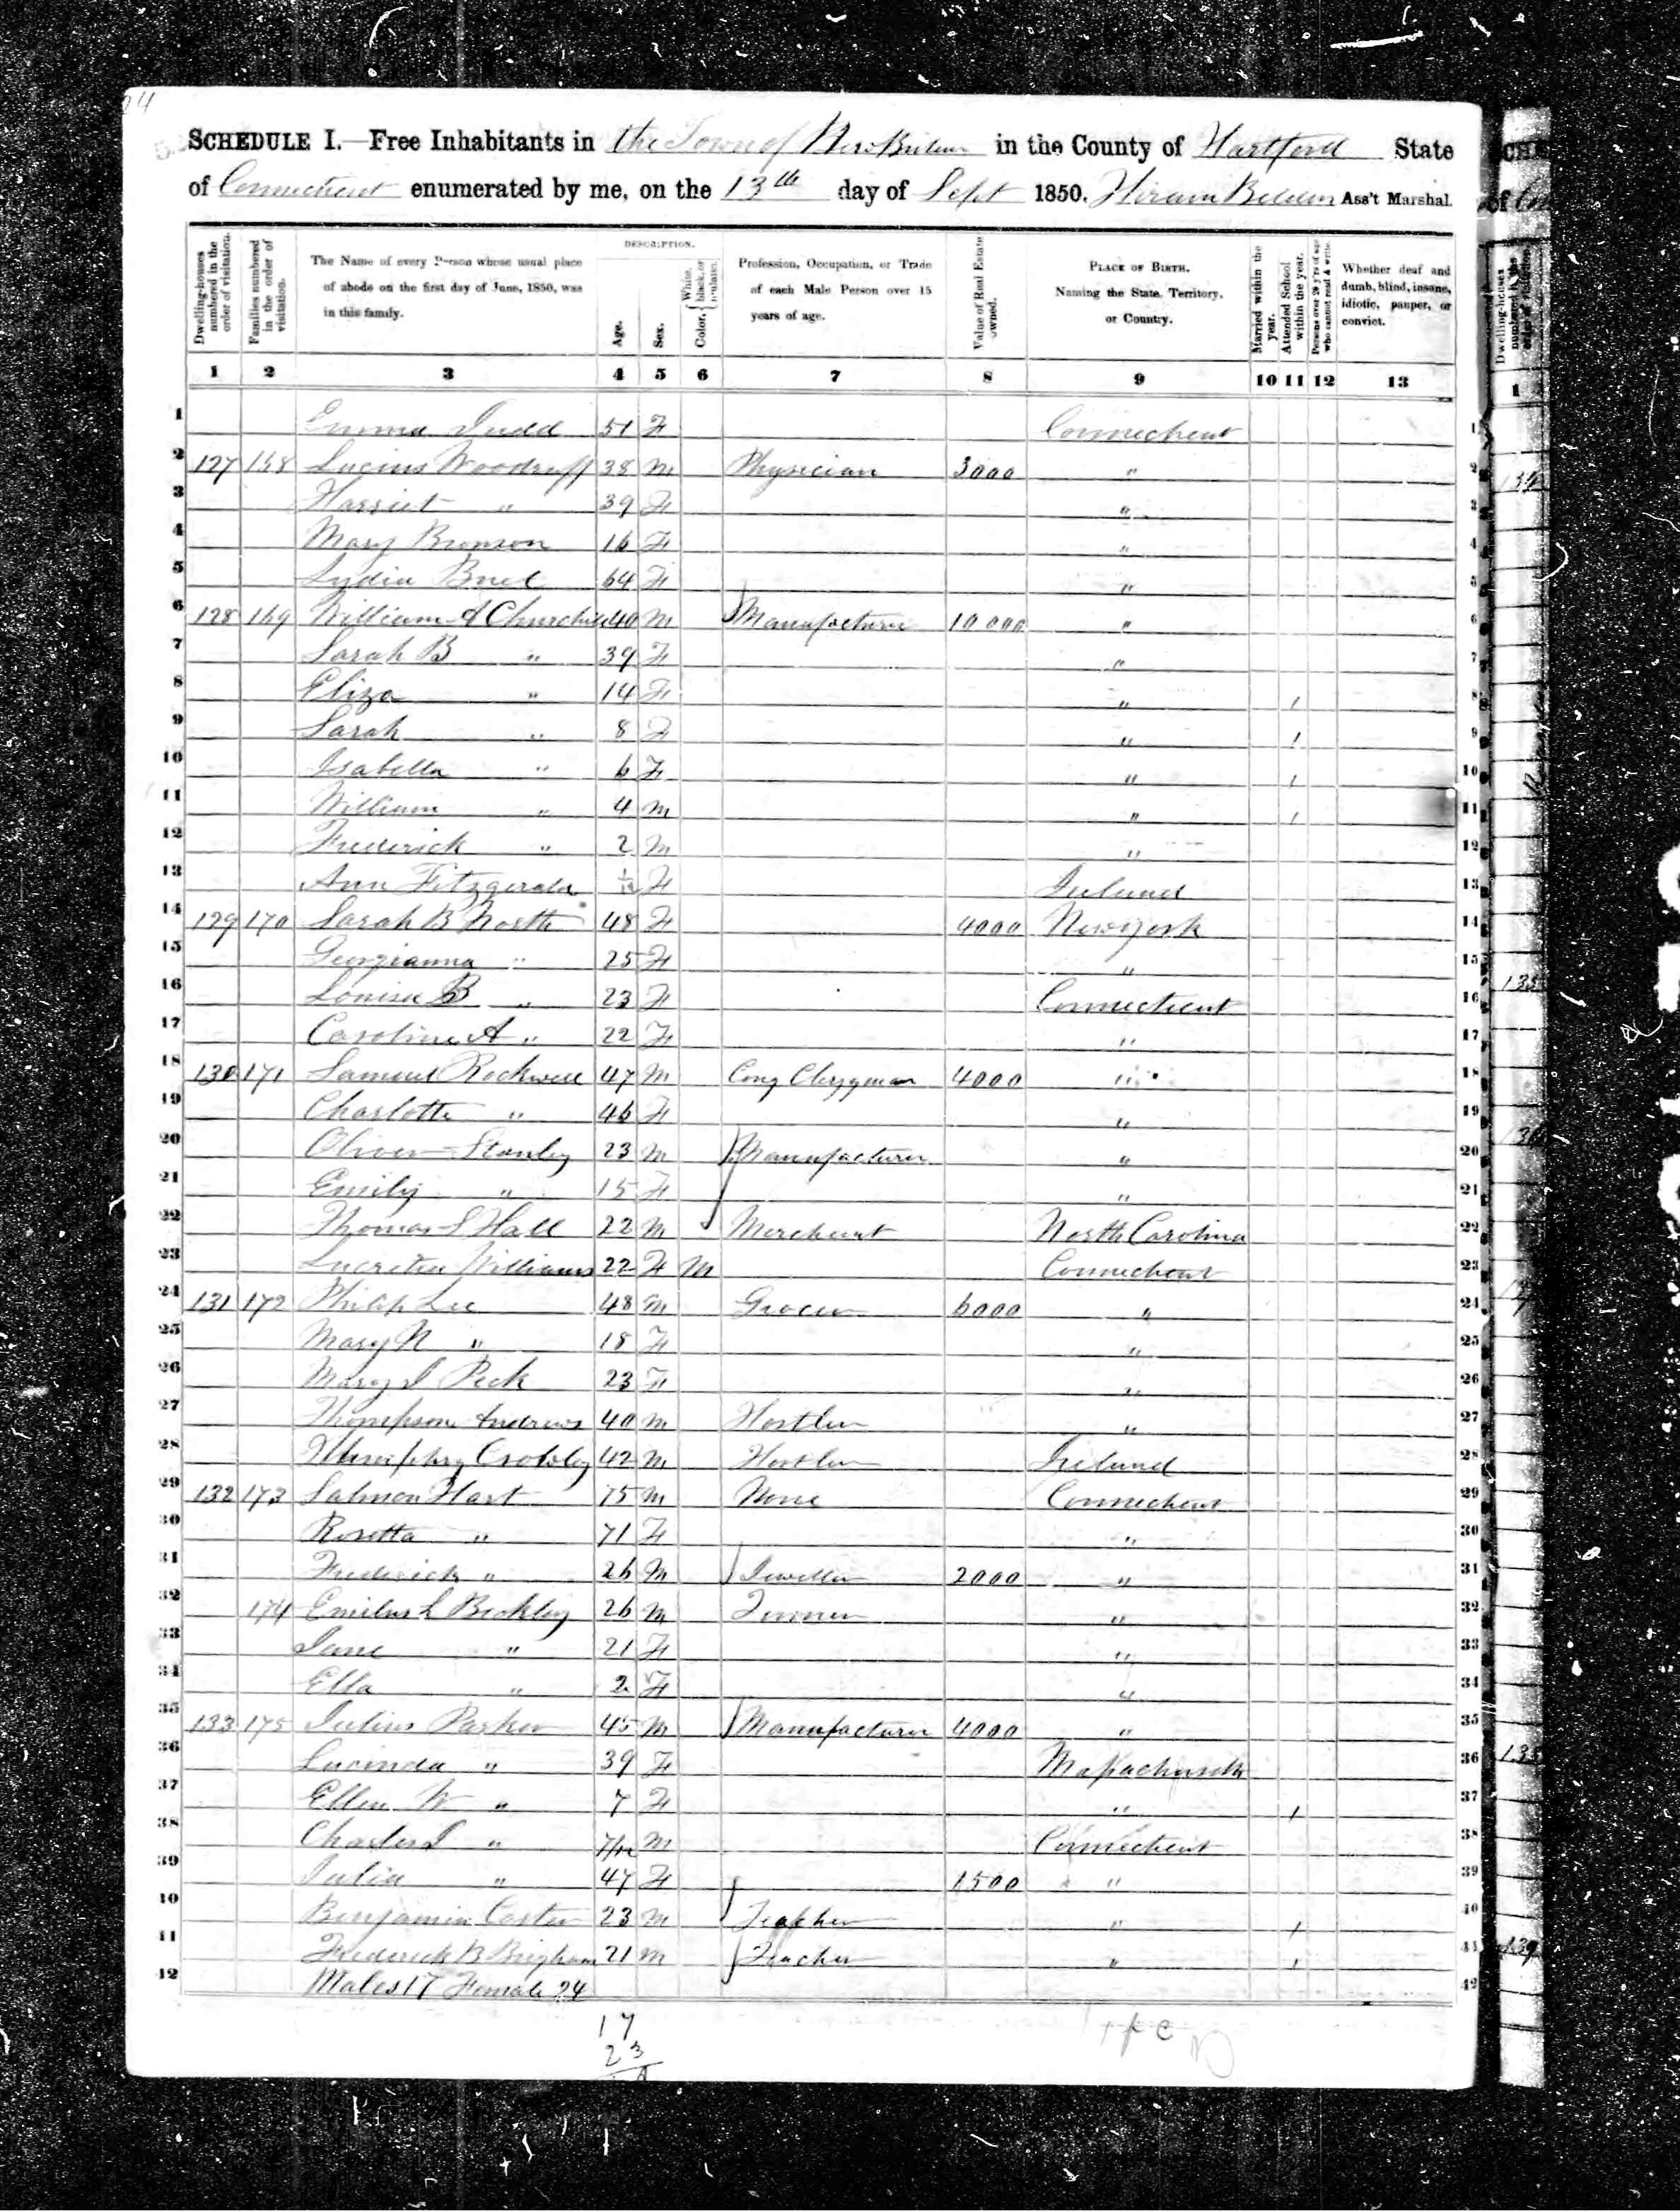 SCHEDULE I.—Free Inhabitants in the Town of New Britain in the County of Hartford State
of Connecticut enumerated by me, on the 13th day of Sept 1850. Hiram Belden Ass't Marshal.
Dwelling-houses numbered in the order of visitation.
Families numbered in the order of visitation.
The Name of every Person whose usual place of abode on the first day of June, 1850, was in this family.
DESCRIPTION.
Age.
Sex.
Color, White, black, or mulatto.
Profession, Occupation, or Trade of each Male Person over 15 years of age.
Value of Real Estate owned.
PLACE OF BIRTH. Naming the State, Territory, or Country.
Married within the year.
Attended School within the year.
Persons over 20 y'rs of age who cannot read & write.
Whether deaf and dumb, blind, insane, idiotic, pauper, or convict.
1 2 3 4 5 6 7 8 9 10 11 12 13
1 Emma Judd 51 F Connecticut 1
2 127 168 Lucius Woodruff 38 M Physician 3000 " 2
3 Harriet " 39 F " 3
4 Mary Bronson 16 F " 4
5 Lydia Buel 64 F " 5
6 128 169 William A Churchill 40 M Manufacturer 10000 " 6
7 Sarah B " 39 F " 7
8 Eliza " 14 F " 1 8
9 Sarah " 8 F " 1 9
10 Isabella " 6 F " 1 10
11 William " 4 M " 1 11
12 Frederick " 2 M " 12
13 Ann Fitzgerald F Ireland 13
14 129 170 Sarah B North 48 F 4000 New York 14
15 Georgianna " 25 F " 15
16 Louisa B " 23 F Connecticut 16
17 Caroline A " 22 F " 17
18 130 171 Samuel Rockwell 47 M Cong Clergyman 4000 " 18
19 Charlotte " 46 F " 19
20 Oliver Stanley 23 M Manufacturer " 20
21 Emily " 15 F " 21
22 Thomas S Hall 22 M Merchant North Carolina 22
23 Lucretia Williams 22 F M Connecticut 23
24 131 172 Philip Lee 48 M Grocer 6000 " 24
25 Mary N " 18 F " 25
26 Mary S Peck 23 F " 26
27 Thompson Andrews 40 M Hostler " 27
28 Humphry Crowley 42 M Hostler Ireland 28
29 132 173 Salmon Hart 75 M None Connecticut 29
30 Rosetta " 71 F " 30
31 Frederick " 26 M Jeweller 2000 " 31
32 174 Emilus L Beckley 26 M " 32
33 Jane " 21 F " 33
34 Ella " 2 F " 34
35 133 175 Julius Parker 45 M Manufacturer 4000 " 35
36 Lucinda " 39 F Massachusetts 36
37 Ellen W " 7 F " 1 37
38 Charles S " 7/12 M Connecticut 38
39 Julia " 47 F 1500 " 39
40 Benjamin Carter 23 M Teacher " 1 40
41 Frederick B Brigham 21 M Teacher " 1 41
42 Males 17 Female 24 42
17
23